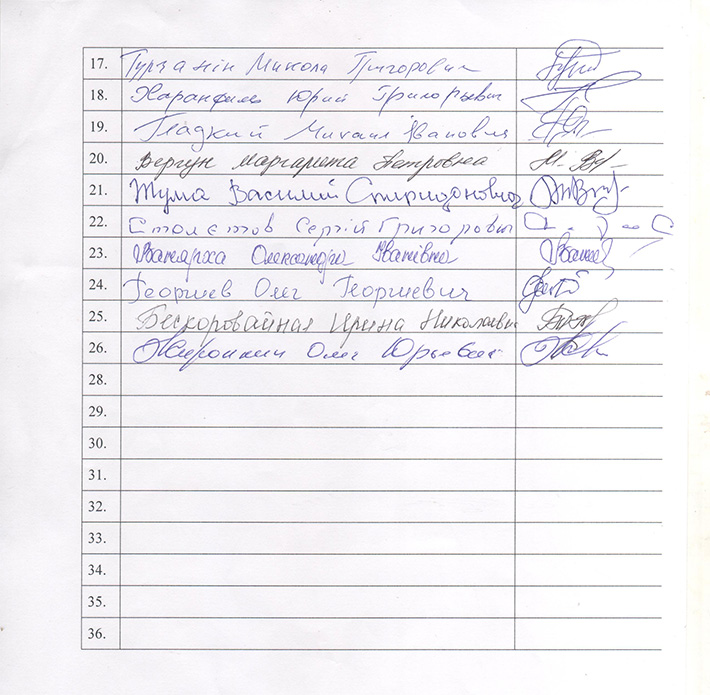 17. Турчанін Микола Григорович
18. Харанфиль Юрий Григорьевич
19. Гладкий Михаил Іванович
20. Вергун Маргарита Петровна
21. Жума Василий Спиридонович
22. Столєтов Сергій Григорович
23. Олександра Іванівна
24. Георгиев Олег Георгиевич
25. Бескоровайная Ирина Николаевна
26. Олег Юрьевич
28.
29.
30.
31.
32.
33.
34.
35.
36.